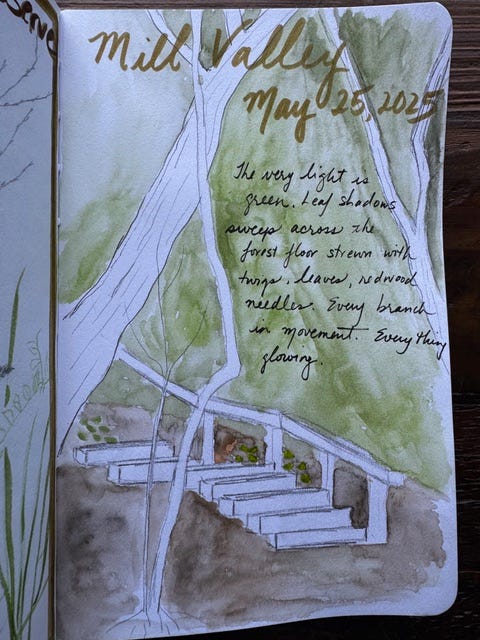 serve
Mill Valley
May 25, 2025
The very light is
green. Leaf shadows
sweep across the
forest floor strewn with
twigs, leaves, redwood
needles. Every branch
in movement. Everything
glowing.